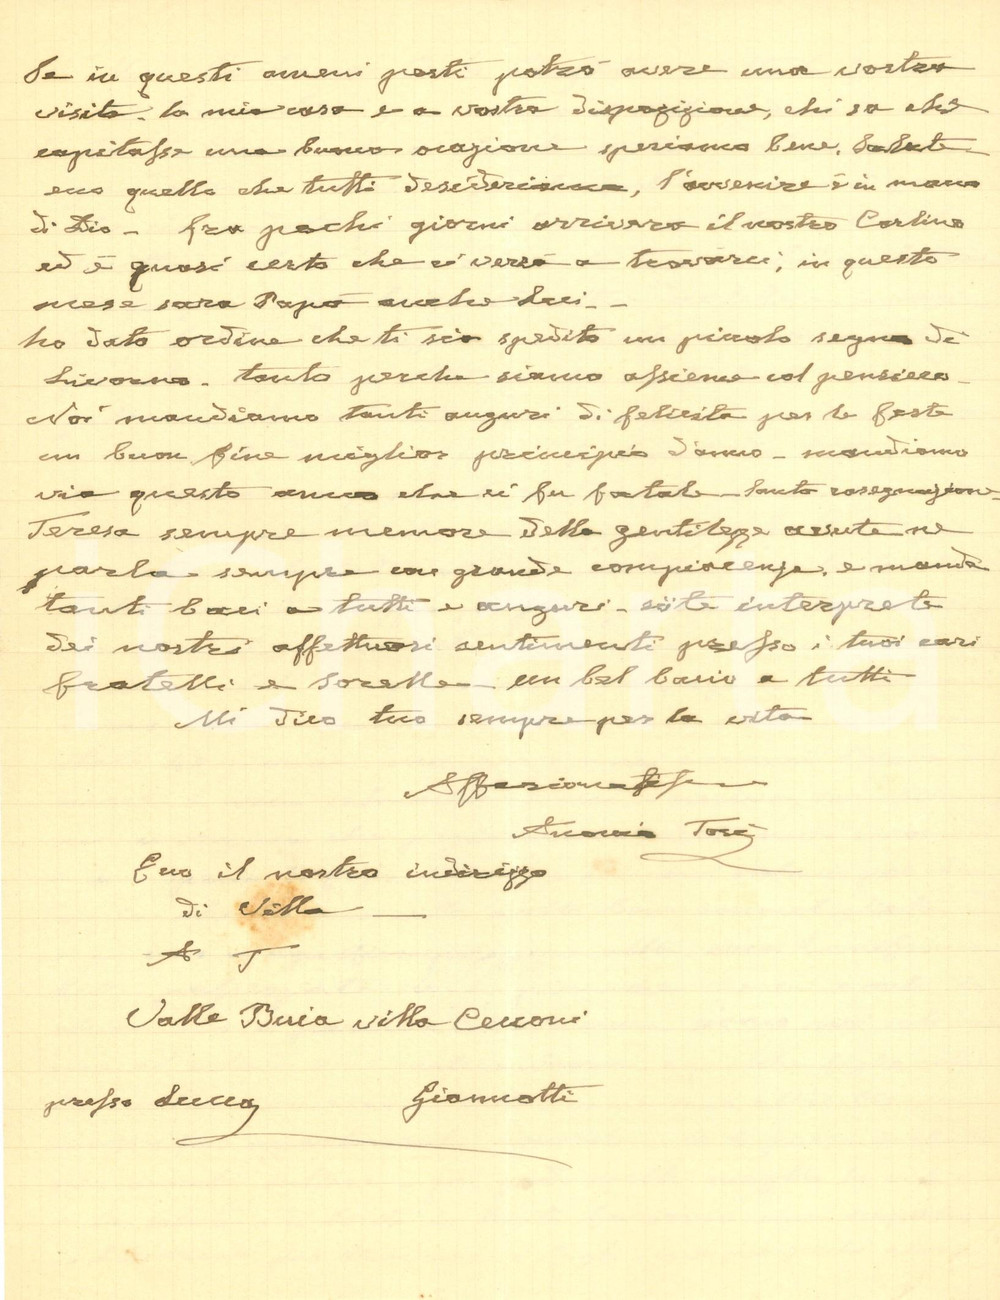 Se in questi ameni posti potrò avere una vostra
visita. la mia casa e a vostra disposizione, chi sa che
capitasse una buona ocazione speriamo bene. Salute
ecco quello che tutti desideriamo, l'avvenire è in mano
di Dio - fra pochi giorni arrivera il nostro Carlino
ed è quasi certo che ci verrà a trovarci, in questo
mese sara Papà anche Lui. -
ho dato ordine che ti sia spedito un piccolo segno di
Livorno. tanto perche siamo assieme col pensiero -
Noi mandiamo tanti auguri di felicità per le feste
un buon fine miglior principio d'anno - mandiamo
via questo anno che ci fu fatale - Santa rasegnazione
Teresa sempre memore della gentilezze avute ne
parla sempre con grande compiacenza. e manda
tanti baci a tutti e auguri - interprete
dei nostri affettuosi sentimenti presso i tuoi cari
fratelli e Sorelle - un bel bacio a tutti
Mi dico tuo sempre per la vita
Affezionatisso
Tosi
Ecco il nostro indirizzo
di Villa -
A T
Valle Buia villa Cecconi
presso Lucca Giannotti